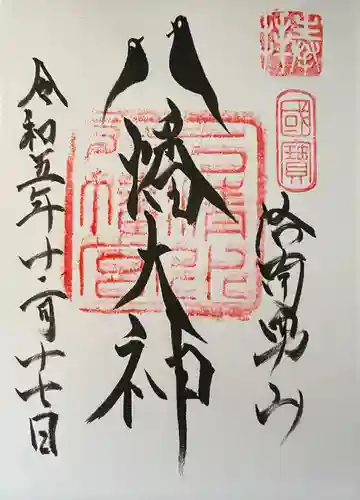 奉拝
國寶
洛南男山
八幡大神
石清水八幡宮
令和五年十二月十七日